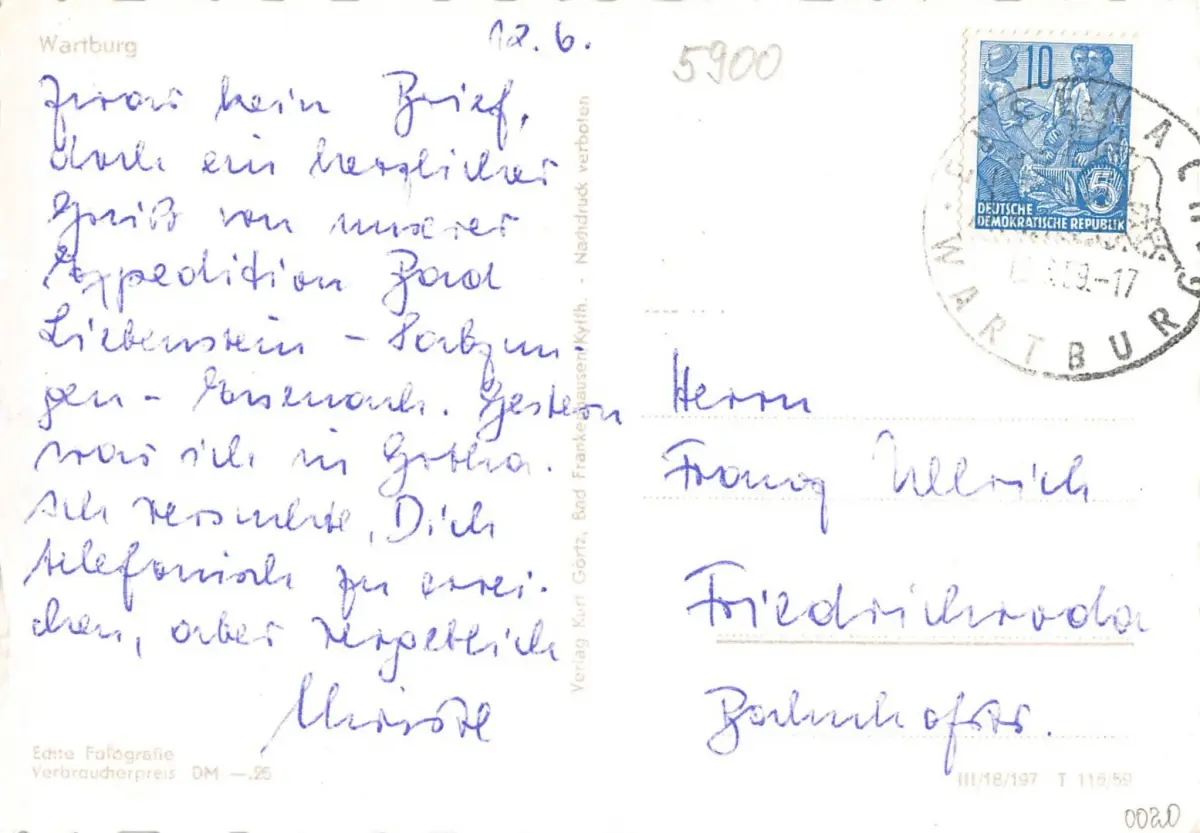 Wartburg
12.6.
Zwar kein Brief,
doch ein herzlicher
Gruß von unserer
Expedition Bad
Liebenstein – Salzun-
gen – Eisenach. Gestern
war ich in Gotha.
Ich versuchte, Dich
telefonisch zu errei-
chen, aber vergeblich
Echte Fotografie
Verbraucherpreis DM —.25
Verlag Kurt Görtz, Bad Frankenhausen/Kyffh. - Nachdruck verboten
5900
10
5
DEUTSCHE
DEMOKRATISCHE REPUBLIK
59.-17
WARTBURG
Herrn
Franz Ullrich
Friedrichroda
Bahnhofstr.
III/18/197 T 116/59
0020